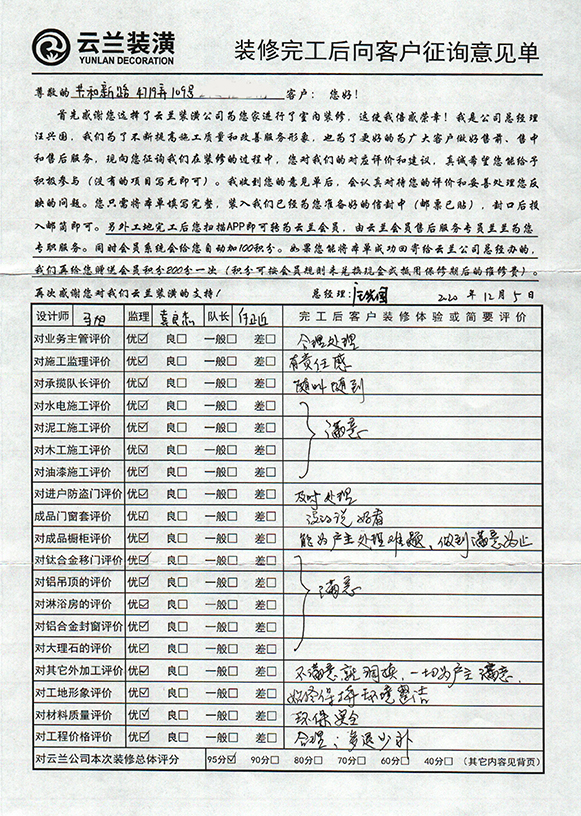 云兰装潢
YUNLAN DECORATION
装修完工后向客户征询意见单
尊敬的 共和新路4719弄109号 客户： 您好！
首先感谢您选择了云兰装潢公司为您家进行了室内装修，这使我倍感荣幸！我是公司总经理
汪兴国，我们为了不断提高施工质量和改善服务形象，也为了更好的为广大客户做好售前、售中
和售后服务，现向您征询我们在装修的过程中，您对我们的对应评价和建议，真诚希望您能给予
积极参与（没有的项目写无即可）。我收到您的意见单后，会认真对待您的评价和妥善处理您反
映的问题。您只需将本单填写完整，装入我们已经为您准备好的信封中（邮票已贴），封口后投
入邮筒即可。另外工地完工后您扫描APP即可转为云兰会员，由云兰会员售后服务专员兰兰为您
专职服务。同时会员系统会给您自动加100积分。如果您能将本单成功回寄给云兰公司总经办的，
我们再给您赠送会员积分200分一次（积分可按会员规则来兑换现金或抵用保修期后的维修费）。
再次感谢您对我们云兰装潢的支持！ 总经理：汪兴国 2020 年 12 月 5 日
设计师 监理 袁良杰 队长 完工后客户装修体验或简要评价
对业务主管评价 优☑ 良□ 一般□ 差□ 合理处理
对施工监理评价 优☑ 良□ 一般□ 差□ 有责任感
对承揽队长评价 优☑ 良□ 一般□ 差□ 随叫随到
对水电施工评价 优☑ 良□ 一般□ 差□
对泥工施工评价 优☑ 良□ 一般□ 差□ 满意
对木工施工评价 优☑ 良□ 一般□ 差□
对油漆施工评价 优☑ 良□ 一般□ 差□
对进户防盗门评价 优☑ 良□ 一般□ 差□ 及时处理
成品门窗套评价 优☑ 良□ 一般□ 差□ 没的说 好看
对成品橱柜评价 优☑ 良□ 一般□ 差□ 能为产主处理难题、做到满意为止
对钛合金移门评价 优☑ 良□ 一般□ 差□
对铝吊顶的评价 优☑ 良□ 一般□ 差□ 满意
对淋浴房的评价 优☑ 良□ 一般□ 差□
对铝合金封窗评价 优☑ 良□ 一般□ 差□
对大理石的评价 优☑ 良□ 一般□ 差□
对其它外加工评价 优☑ 良□ 一般□ 差□ 不满意就调换，一切为产主满意.
对工地形象评价 优☑ 良□ 一般□ 差□ 始终保持环境整洁
对材料质量评价 优☑ 良□ 一般□ 差□ 环保安全
对工程价格评价 优☑ 良□ 一般□ 差□ 合理；多退少补
对云兰公司本次装修总体评分 95分☑ 90分□ 80分□ 70分□ 60分□ 40分□ （其它内容见背页）